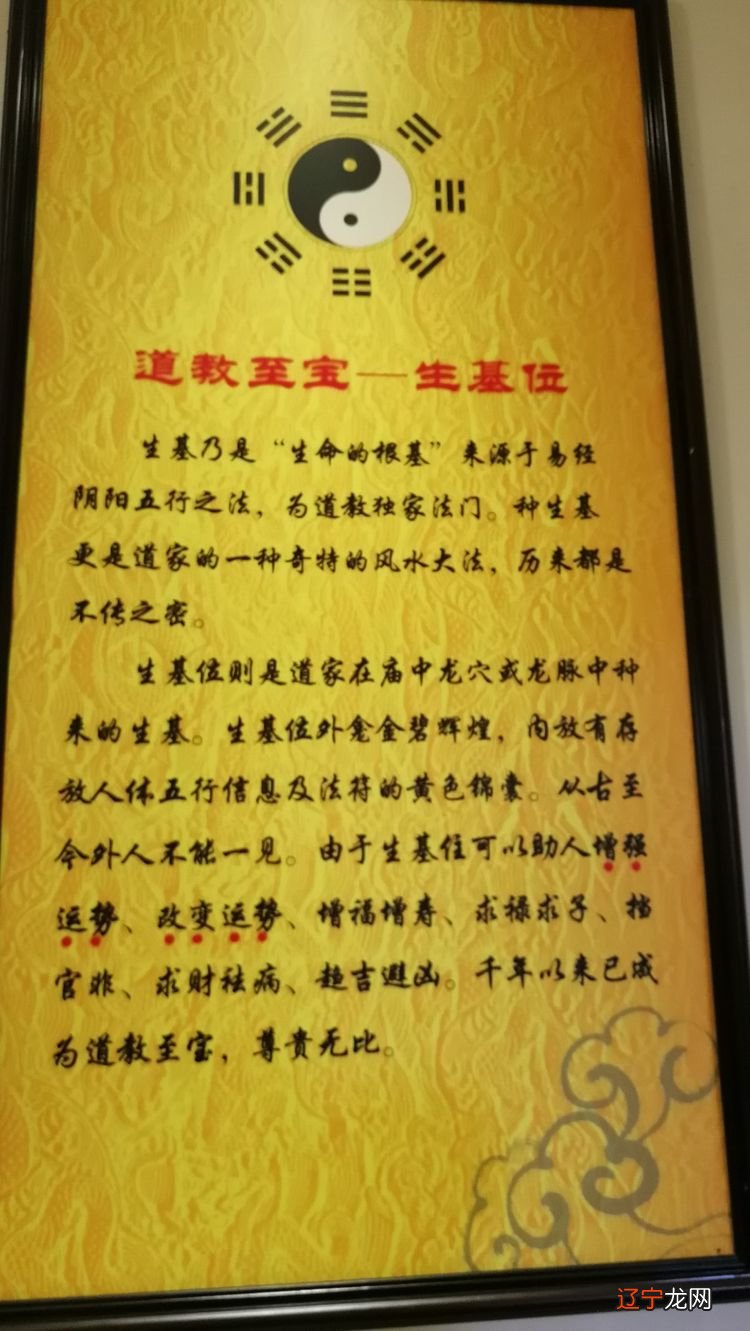 道教至宝—生基位
生基乃是“生命的根基”来源于易经
阴阳五行之法，为道教独家法门。种生基
更是道家的一种奇特的风水大法，历来都是
不传之密。
生基位则是道家在庙中龙穴或龙脉中种
来的生基。生基位外龛金碧辉煌，内放有存
放人体五行信息及法符的黄色锦囊。从古至
今外人不能一见。由于生基位可以助人增强
运势、改变运势、增福增寿、求禄求子、挡
官非、求财祛病、趋吉避凶。千年以来已成
为道教至宝，尊贵无比。
辽宁龙网